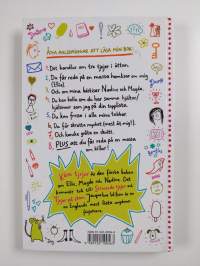 ÅTTA ANLEDNINGAR ATT LÄSA MIN BOK:
1. Det handlar om tre tjejer i åttan.
2. Du får reda på en massa hemlisar om mig
(Ellie).
3. Och om mina bästisar Nadine och Magda.
4. Du kan kolla om du har samma hjältar/
hjältinnor som jag på din topplista.
5. Du kan fnissa i alla mina tabbar.
6. Du får skratta mycket (mest åt mig!).
7. Och kanske gråta en skvätt.
8. PLUS att du får reda på en massa
om killar!
Våra tjejer är den första boken
om Ellie, Magda och Nadine. Det
kommer två till:
Jacqueline Wilson är en
av Englands mest lästa ungdoms-
författare.